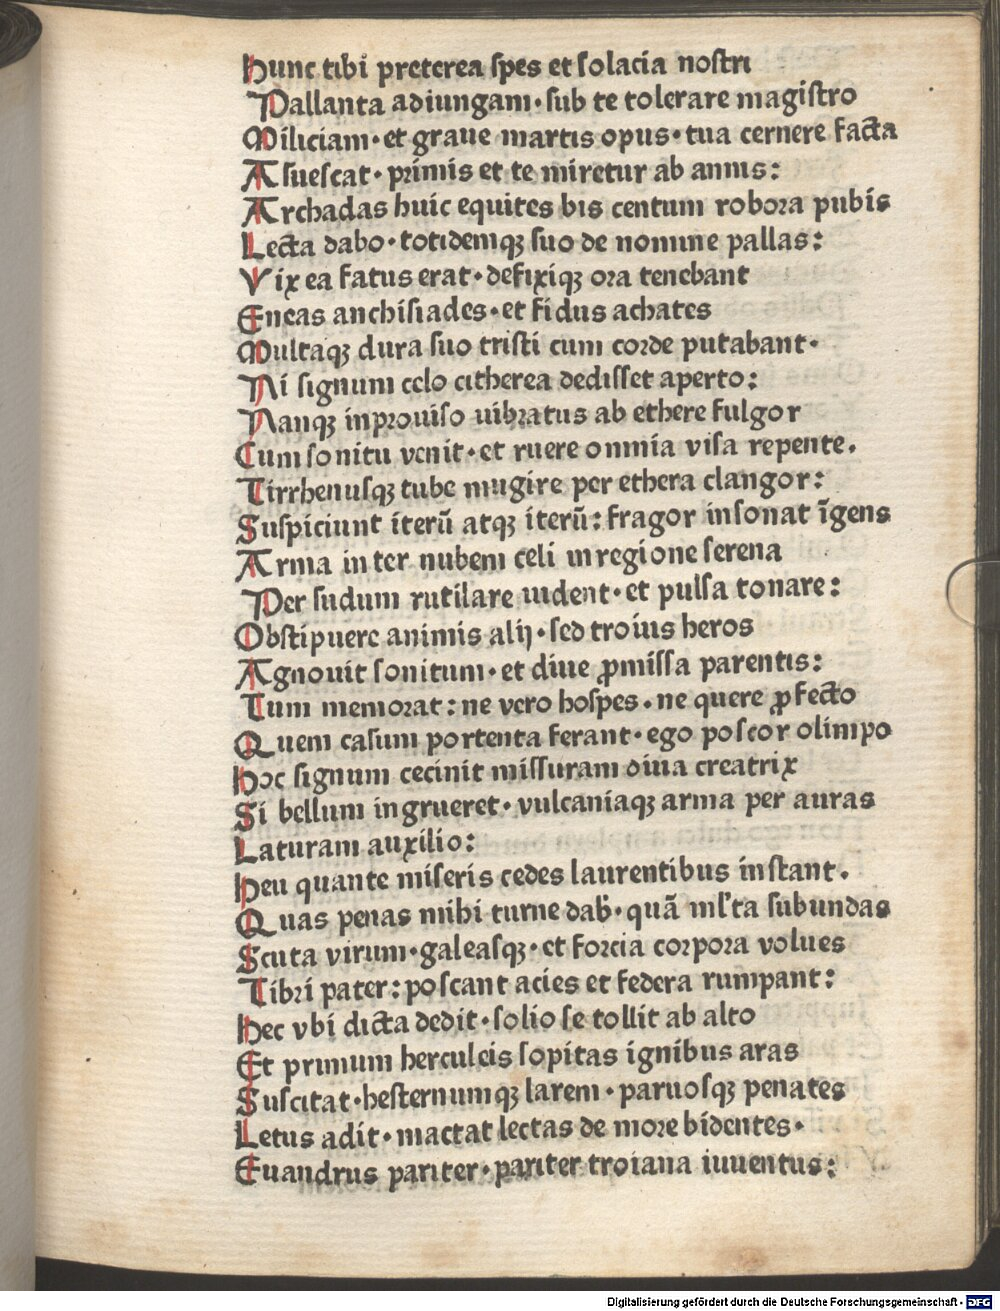 Hunc tibi preterea spes et solacia nostri
Pallanta adiungam · sub te tolerare magistro
Miliciam · et graue martis opus · tua cernere facta
Asuescat · primis et te miretur ab annis :
Archadas huic equites bis centum robora pubis
Lecta dabo · totidemqꝫ suo de nomine pallas :
Vix ea fatus erat · defixiqꝫ ora tenebant
Eneas anchisiades · et fidus achates
Multaqꝫ dura suo tristi cum corde putabant ·
Ni signum celo citherea dedisset aperto :
Nanqꝫ inprouiso uibratus ab ethere fulgor
Cum sonitu venit · et ruere omnia visa repente .
Tirrhenusqꝫ tube mugire per ethera clangor :
Suspiciunt iterū atqꝫ iterū : fragor insonat īgens
Arma inter nubem celi in regione serena
Per sudum rutilare uident · et pulsa tonare :
Obstipuere animis alij · sed troius heros
Agnouit sonitum · et diue ꝓmissa parentis :
Tum memorat : ne vero hospes · ne quere ꝓfecto
Quem casum portenta ferant · ego poscor olimpo
Hoc signum cecinit missuram diua creatrix
Si bellum ingrueret · vulcaniaqꝫ arma per auras
Laturam auxilio :
Heu quante miseris cedes laurentibus instant .
Quas penas mihi turne dab̓ · quā ml̓ta sub undas
Scuta virum · galeasqꝫ · et forcia corpora volues
Tibri pater : poscant acies et federa rumpant :
Hec vbi dicta dedit · solio se tollit ab alto
Et primum herculeis sopitas ignibus aras
Suscitat · hesternumqꝫ larem · paruosqꝫ penates
Letus adit · mactat lectas de more bidentes ·
Euandrus pariter · pariter troiana iuuentus :
Digitalisierung gefördert durch die Deutsche Forschungsgemeinschaft - DFG